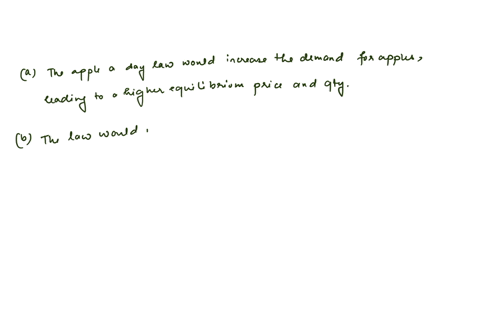 (a) The apple a day law would increase the demand for apples,
leading to a higher equilibrium price and qty.
(b) The law would